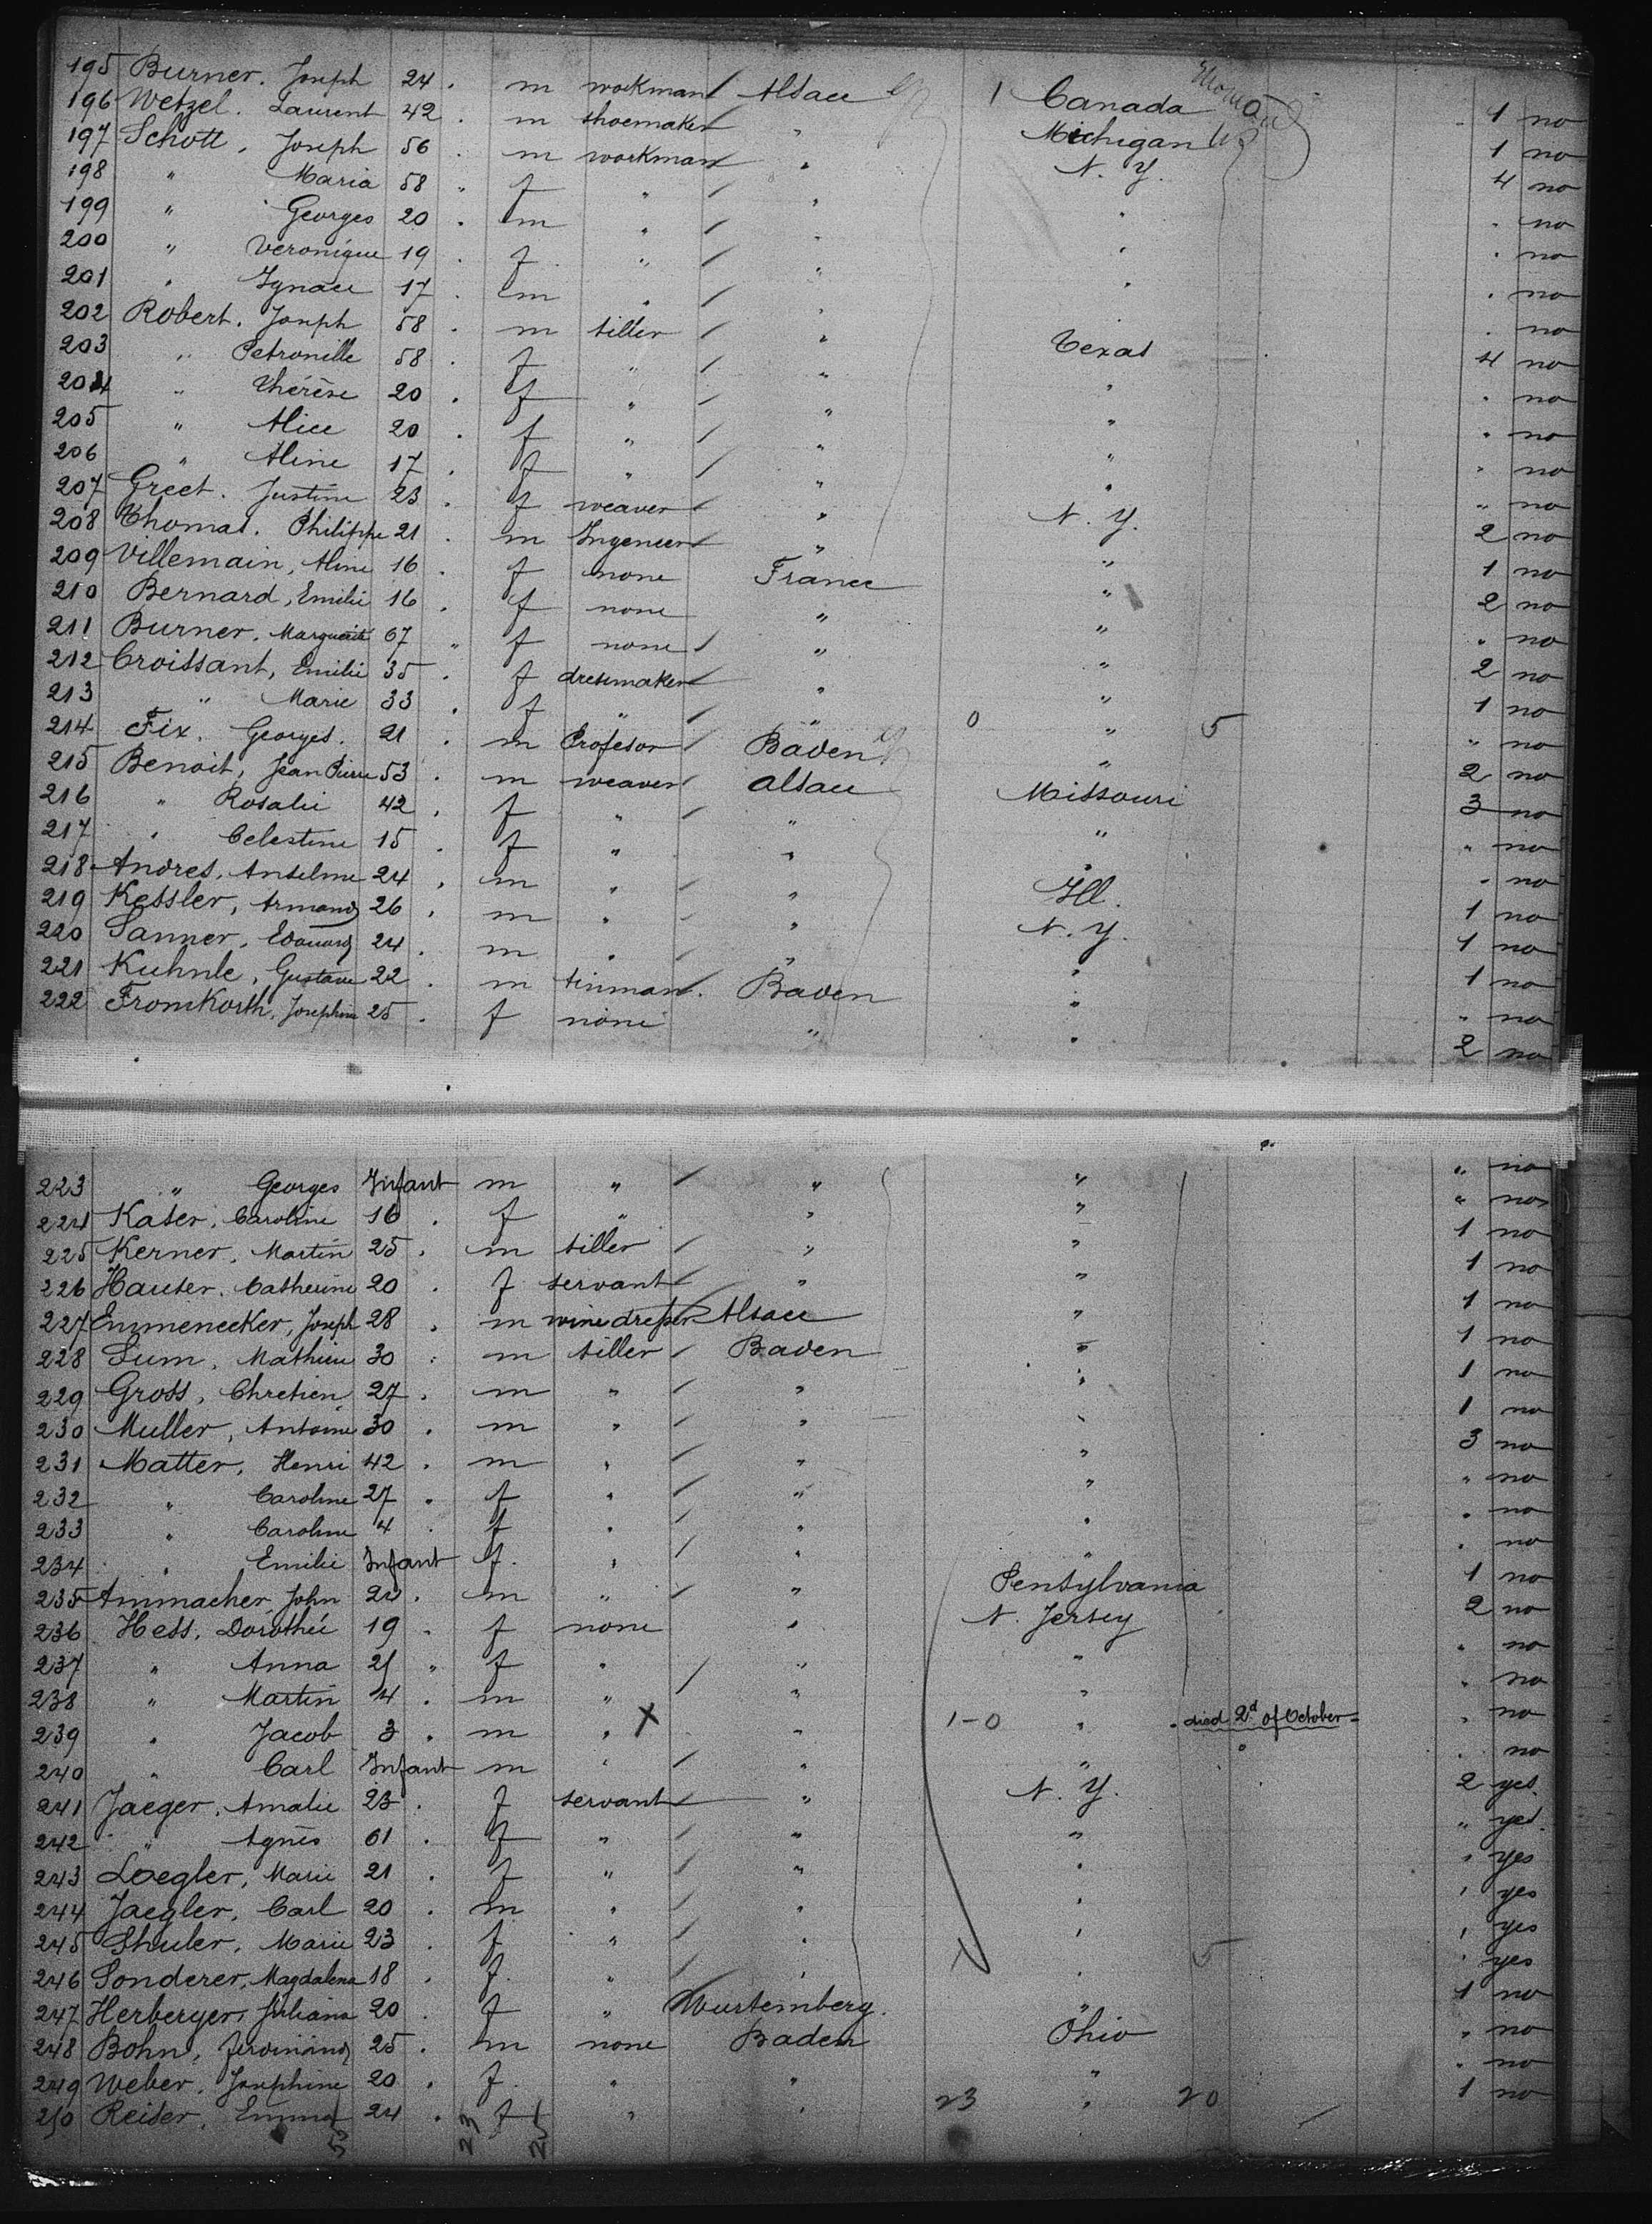 195 Burner. Joseph 24 . m workman / Alsace 1 Canada 1 no
196 Wetzel. Laurent 42 . m shoemaker / " Michigan 1 no
197 Schott, Joseph 56 . m workman / " N. Y. 4 no
198 " Maria 58 " f " / " " " no
199 " Georges 20 . m " / " " " no
200 " Veronique 19 . f " / " " " no
201 " Ignace 17 . m " / " " " no
202 Robert. Joseph 58 . m tiller / " Texas 4 no
203 " Petronille 58 . f " / " " " no
204 " Thérèse 20 . f " / " " " no
205 " Alice 20 . f " / " " " no
206 " Aline 17 . f " / " " " no
207 Greet. Justine 23 . f weaver / " N. Y. 2 no
208 Thomas. Philippe 21 . m Ingeneer / " " 1 no
209 Villemain, Aline 16 . f none France " 2 no
210 Bernard, Emilie 16 . f none " " " no
211 Burner. Marguerite 67 " f none / " " 2 no
212 Croissant, Emilie 35 . f dressmaker / " " 1 no
213 " Marie 33 . f " / " 0 " 5 " no
214 Fix. Georges. 21 . m Profesor / Baden " 2 no
215 Benoit, Jean Pierre 53 . m weaver / Alsace Missouri 3 no
216 " Rosalie 42 . f " / " " " no
217 " Celestine 15 . f " " " " no
218 Andres, Anselme 24 . m " / " Ill. 1 no
219 Kessler, Armand 26 . m " / " N. Y. 1 no
220 Sanner, Edouard 24 . m " / " " 1 no
221 Kuhnle, Gustave 22 . m tinman / Baden " " no
222 FromKorth, Josephine 25 . f none " " 2 no
223 " Georges Infant m " / " " " no
224 Kaser, Caroline 16 . f " " " " no
225 Kerner, Martin 25 . m tiller / " " 1 no
226 Hauser. Catherine 20 . f servant / " " 1 no
227 Emmenecker, Joseph 28 . m winedresser / Alsace " 1 no
228 Sum, Mathieu 30 . m tiller / Baden " 1 no
229 Gross, Chretien 27 . m " / " " 1 no
230 Muller, Antoine 30 . m " / " " 1 no
231 Matter, Henri 42 . m " / " " 3 no
232 " Caroline 27 . f " / " " " no
233 " Caroline 4 . f " / " " " no
234 " Emilie Infant f. " / " " " no
235 Ammacher, John 20 . m " / " Pensylvania 1 no
236 Hess, Dorothée 19 . f none " N. Jersey 2 no
237 " Anna 21 " f " / " " " no
238 " Martin 4 . m " " " " no
239 " Jacob 3 . m " X " 1-0 " died 2d of October " no
240 " Carl Infant m " / " " " no
241 Jaeger, Amalie 23 . f servant / " N. Y. 2 yes
242 " Agnès 61 . f " / " " " yes
243 Loegler, Marie 21 . f " / " " " yes
244 Jaegler, Carl 20 . m " / " " " yes
245 Shuler, Marie 23 . f " / " " " yes
246 Sonderer, Magdalena 18 . f. " / " " 5 " yes
247 Herberger, Juliana 20 . f " Wurtemberg. " 1 no
248 Bohn, Ferdinand 25 . m none Baden Ohio " no
249 Weber, Josephine 20 . f. " " " " no
250 Reiser, Emma 24 . f " " 23 " 20 1 no
23